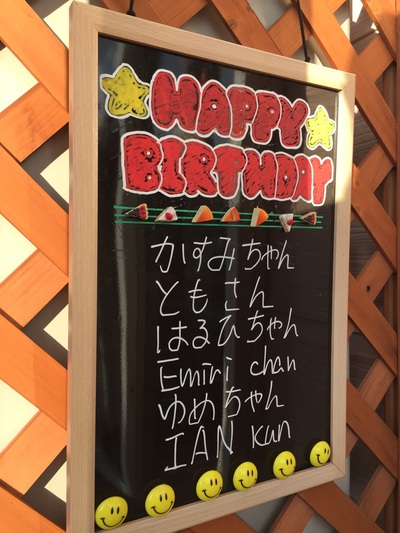 HAPPY
BIRTHDAY
かすみちゃん
ともさん
はるひちゃん
Emiri chan
ゆめちゃん
IAN kun